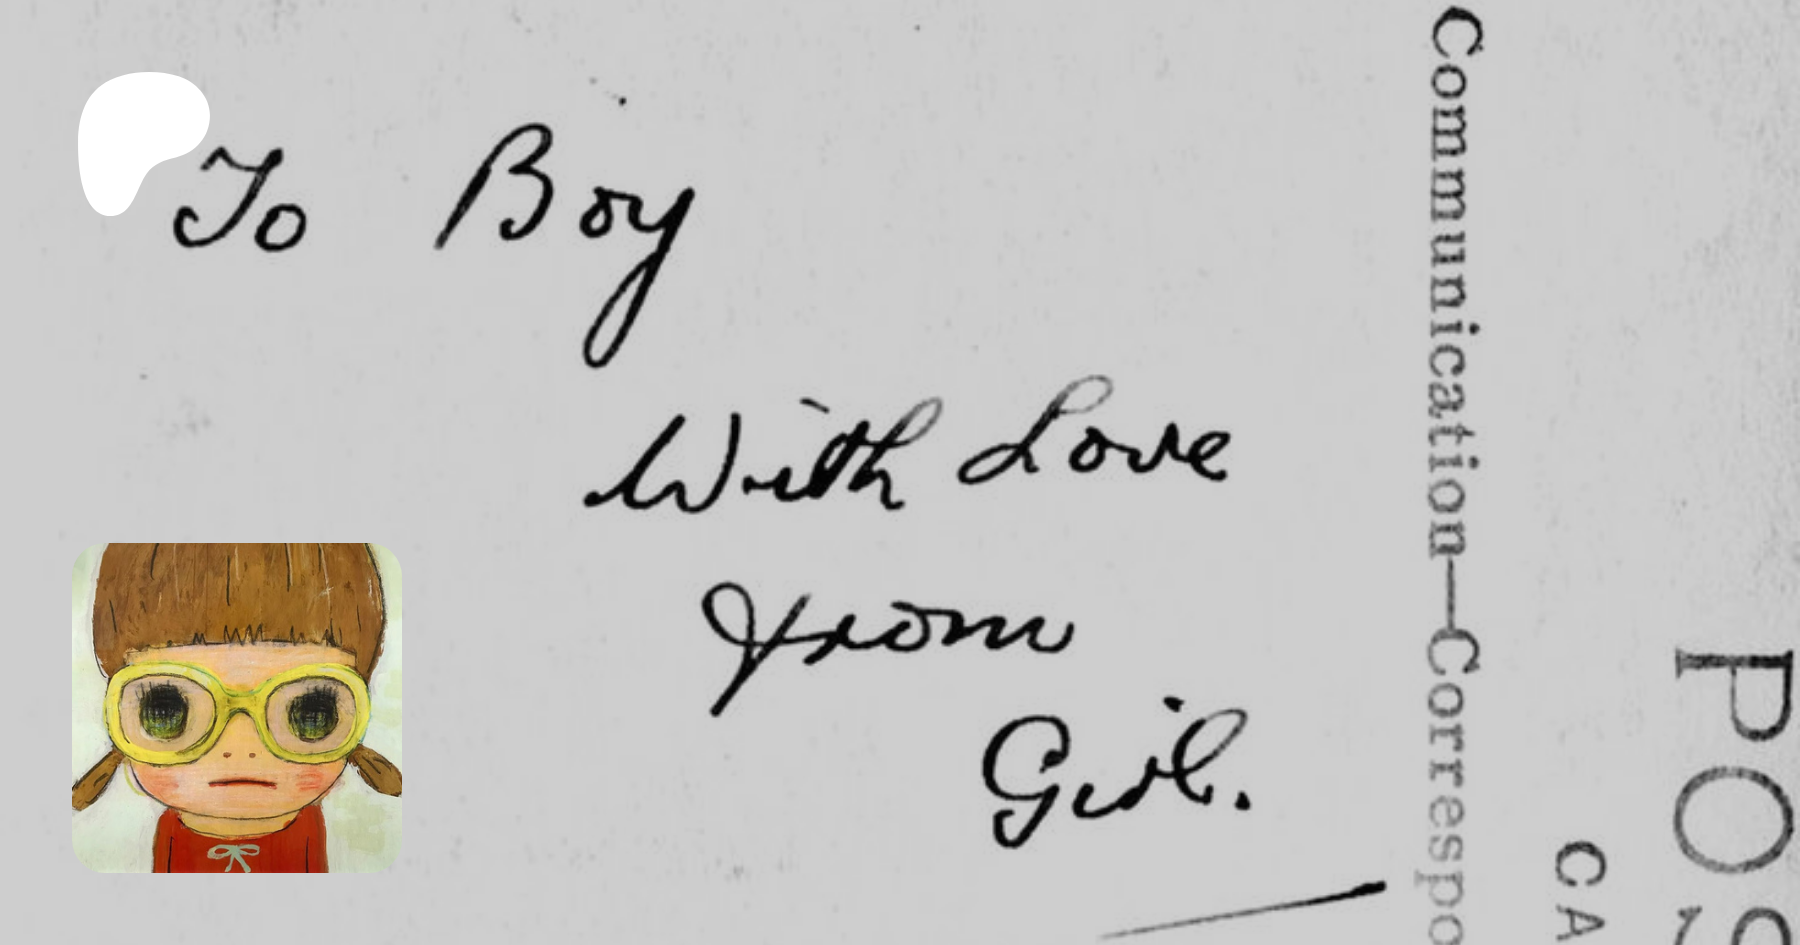 To Boy
With Love
from
Girl.
Communication—Correspo
POS
CA